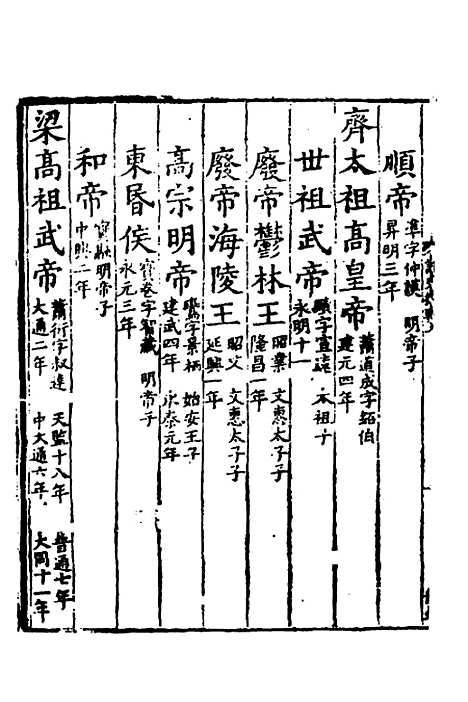 順帝 準字仲謨 明帝子 昇明三年
齊太祖高皇帝 蕭道成字紹伯 建元四年
世祖武帝 賾字宣遠 太祖子 永明十一
廢帝鬱林王 昭業 文惠太子子 隆昌一年
廢帝海陵王 昭文 文惠太子子 延興一年
高宗明帝 鸞字景栖 始安王子 建武四年 永泰元年
東昏侯 寶卷字智藏 明帝子 永元三年
和帝 寶融 明帝子 中興二年
梁高祖武帝 蕭衍字叔達 天監十八年 普通七年 大通二年 中大通六年 大同十一年